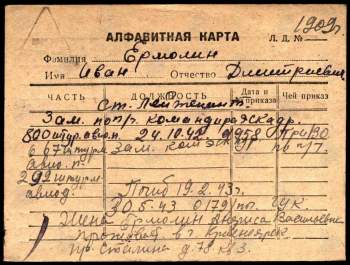 1909г.
АЛФАВИТНАЯ КАРТА
Л. Д. №
Фамилия Ермолин
Имя Иван Отчество Дмитриевич
ЧАСТЬ ДОЛЖНОСТЬ Дата и приказ Чей приказ
Ст. Лейтенант
Зам. по п/ч. командира эскадр.
800 штур. авиап. 24.10.42
667 штурм. Зам. ком. эск.
авиа. п.
292 штурм.
авиад. Погиб 19.2.43г.
30.5.43 0179/пог. ГУК.
Жена Ермолин Васильевна
Прожив. в г. Красноярск
пр. Сталина д. 78 кв. 3.